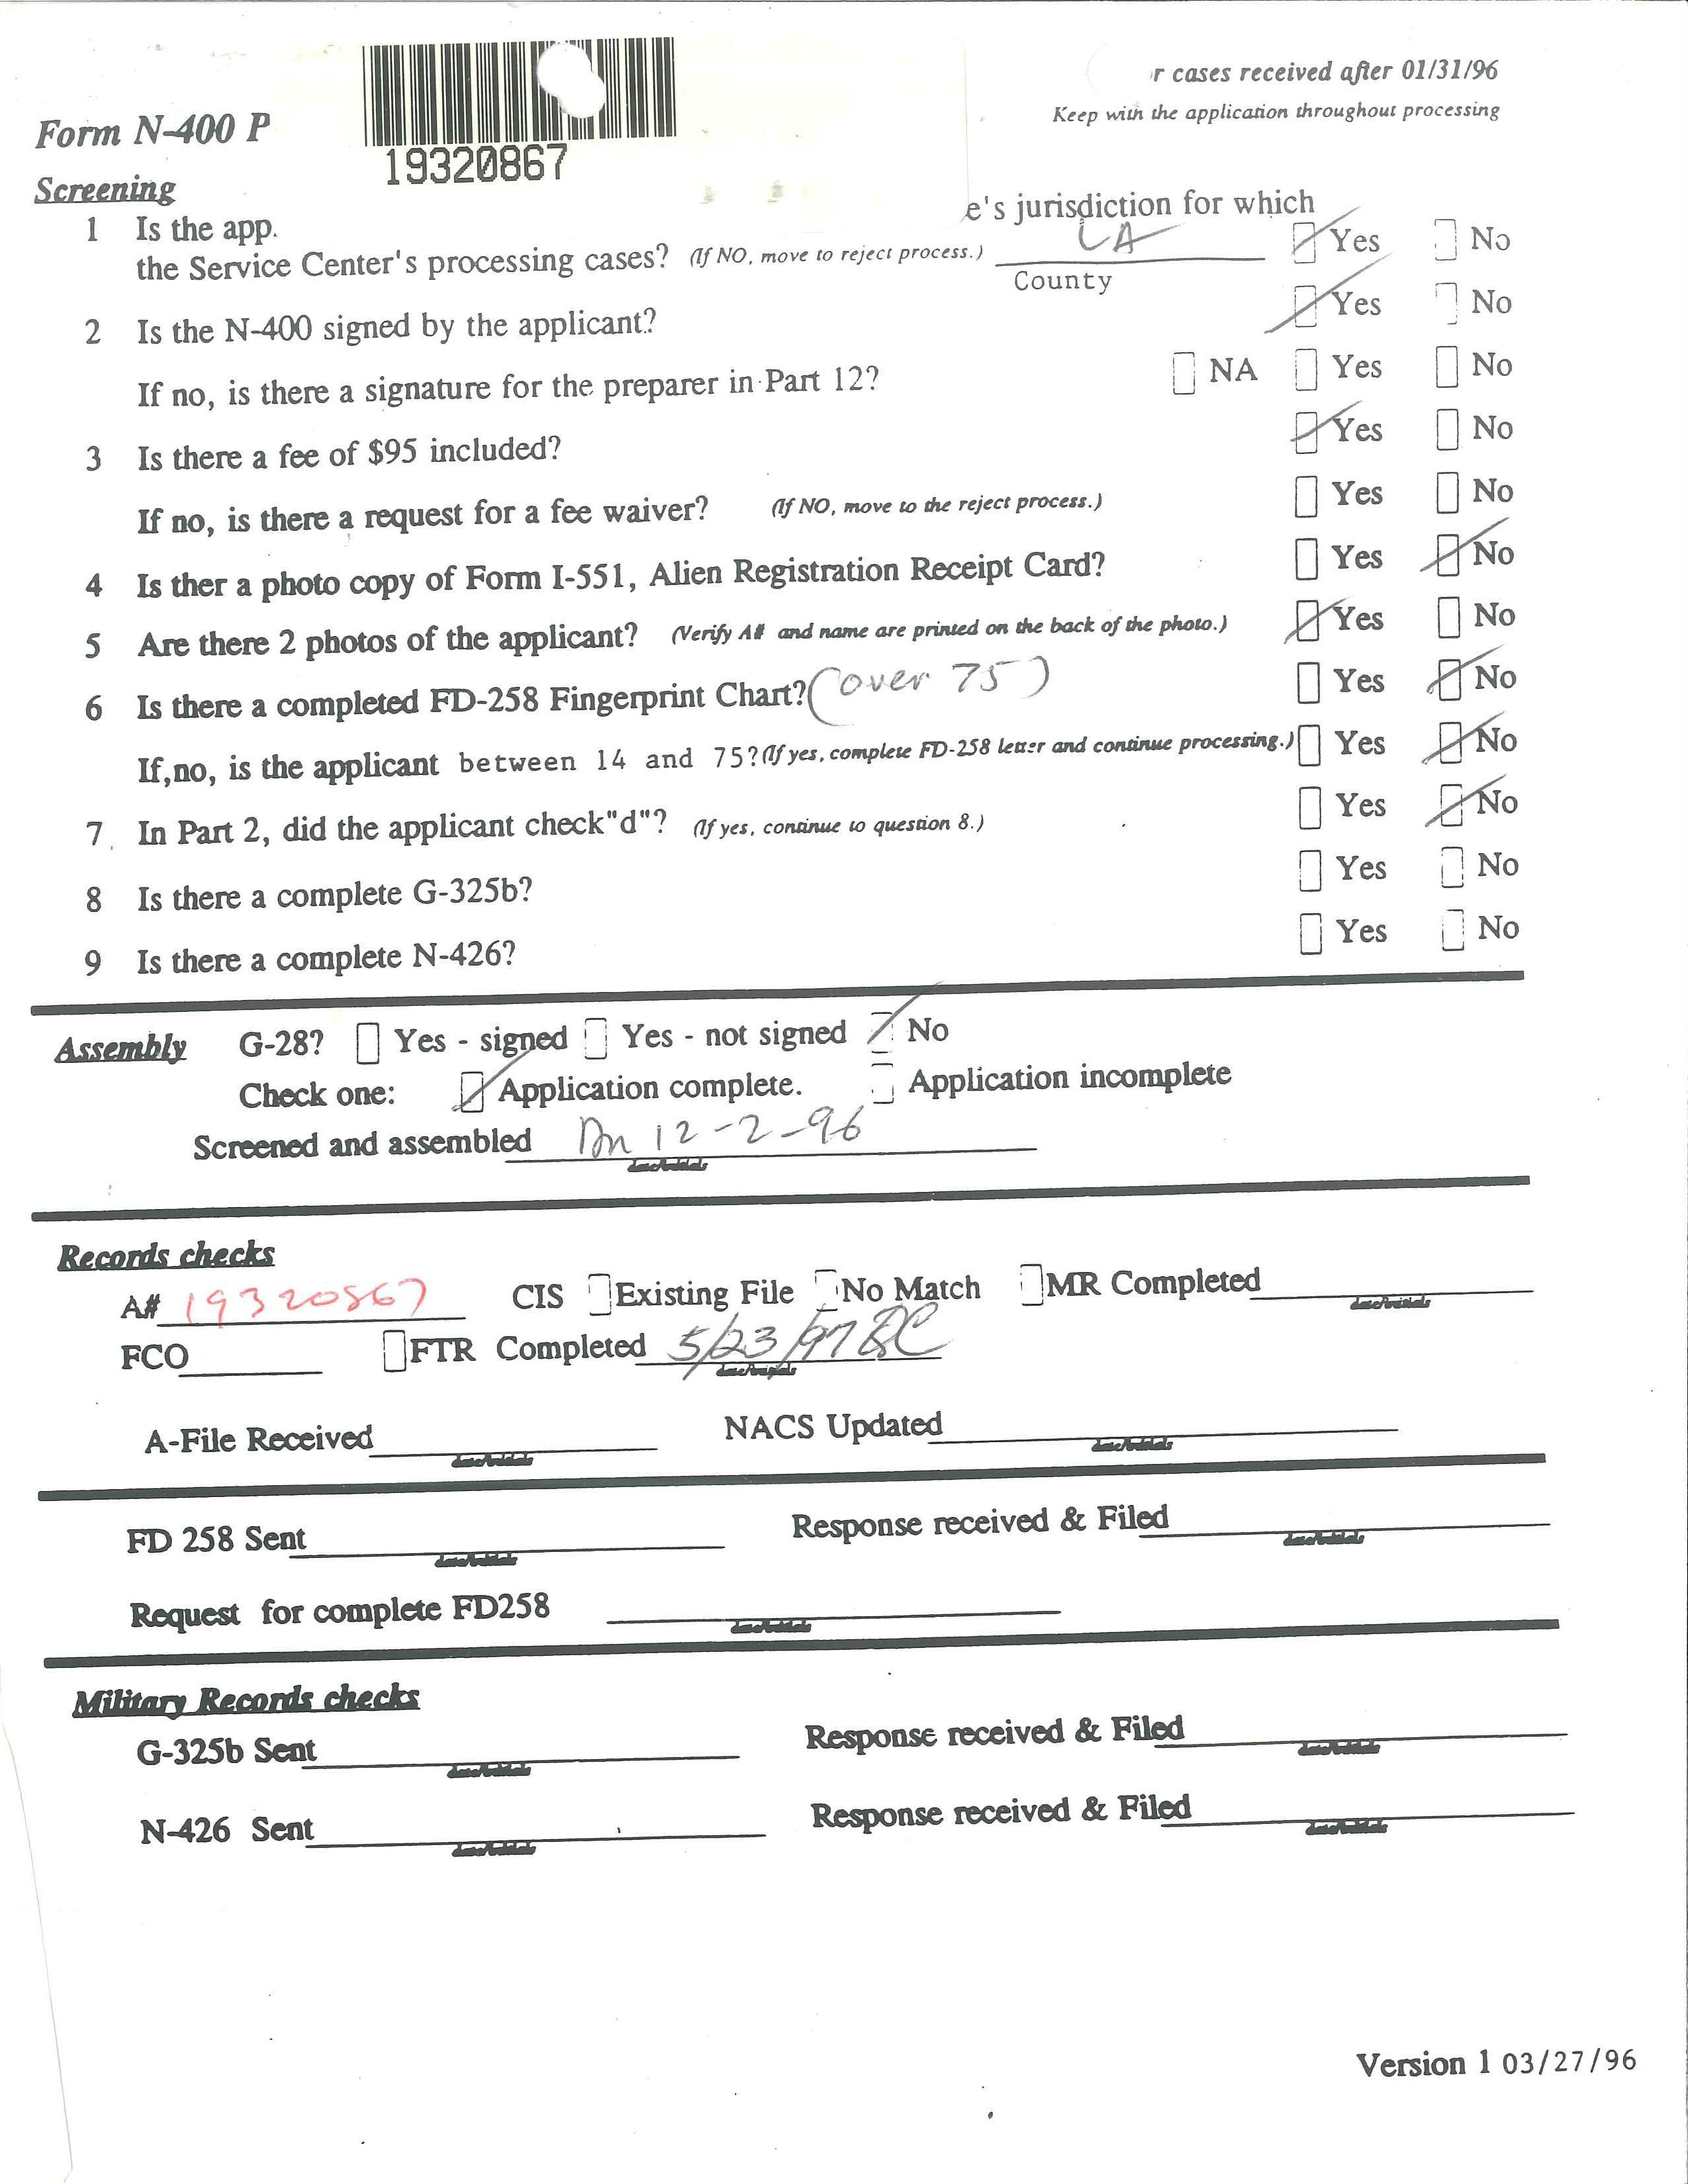 r cases received after 01/31/96
Keep with the application throughout processing
Form N-400 P
19320867
Screening
1 Is the app. e's jurisdiction for which
the Service Center's processing cases? (If NO, move to reject process.) LA Yes No
County
2 Is the N-400 signed by the applicant? Yes No
If no, is there a signature for the preparer in Part 12? NA Yes No
3 Is there a fee of $95 included? Yes No
If no, is there a request for a fee waiver? (If NO, move to the reject process.) Yes No
4 Is ther a photo copy of Form I-551, Alien Registration Receipt Card? Yes No
5 Are there 2 photos of the applicant? (Verify A# and name are printed on the back of the photo.) Yes No
6 Is there a completed FD-258 Fingerprint Chart? (over 75) Yes No
If,no, is the applicant between 14 and 75? (If yes, complete FD-258 letter and continue processing.) Yes No
7 In Part 2, did the applicant check"d"? (If yes, continue to question 8.) Yes No
8 Is there a complete G-325b? Yes No
9 Is there a complete N-426? Yes No
Assembly G-28? Yes - signed Yes - not signed No
Check one: Application complete. Application incomplete
Screened and assembled 12-2-96
date/initials
Records checks
A# 19320867 CIS Existing File No Match MR Completed
date/initials
FCO FTR Completed 5/23/97
date/initials
A-File Received NACS Updated
date/initials date/initials
FD 258 Sent Response received & Filed
date/initials date/initials
Request for complete FD258
date/initials
Military Records checks
G-325b Sent Response received & Filed
date/initials date/initials
N-426 Sent Response received & Filed
date/initials date/initials
Version 1 03/27/96